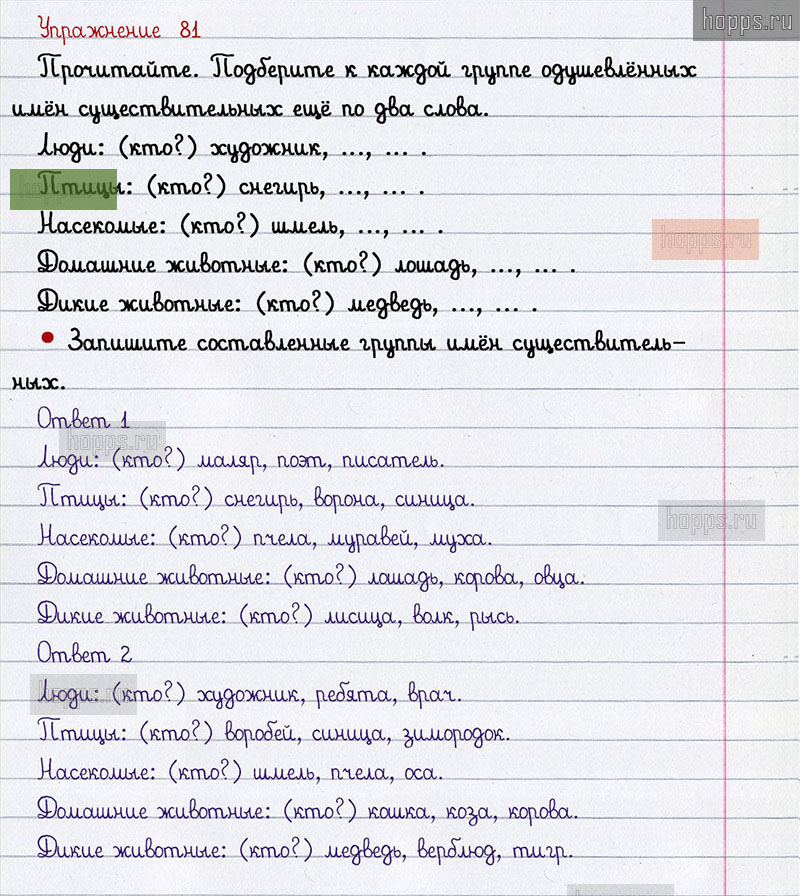 hopps.ru
Упражнение 81
Прочитайте. Подберите к каждой группе одушевлённых
имён существительных ещё по два слова.
Люди: (кто?) художник, ..., ... .
Птицы: (кто?) снегирь, ..., ... .
Насекомые: (кто?) шмель, ..., ... .
hopps.ru
Домашние животные: (кто?) лошадь, ..., ... .
Дикие животные: (кто?) медведь, ..., ... .
• Запишите составленные группы имён существитель-
ных.
Ответ 1
hopps.ru
Люди: (кто?) маляр, поэт, писатель.
Птицы: (кто?) снегирь, ворона, синица.
hopps.ru
Насекомые: (кто?) пчела, муравей, муха.
Домашние животные: (кто?) лошадь, корова, овца.
Дикие животные: (кто?) лисица, волк, рысь.
Ответ 2
Люди: (кто?) художник, ребята, врач.
Птицы: (кто?) воробей, синица, зимородок.
Насекомые: (кто?) шмель, пчела, оса.
Домашние животные: (кто?) кошка, коза, корова.
Дикие животные: (кто?) медведь, верблюд, тигр.